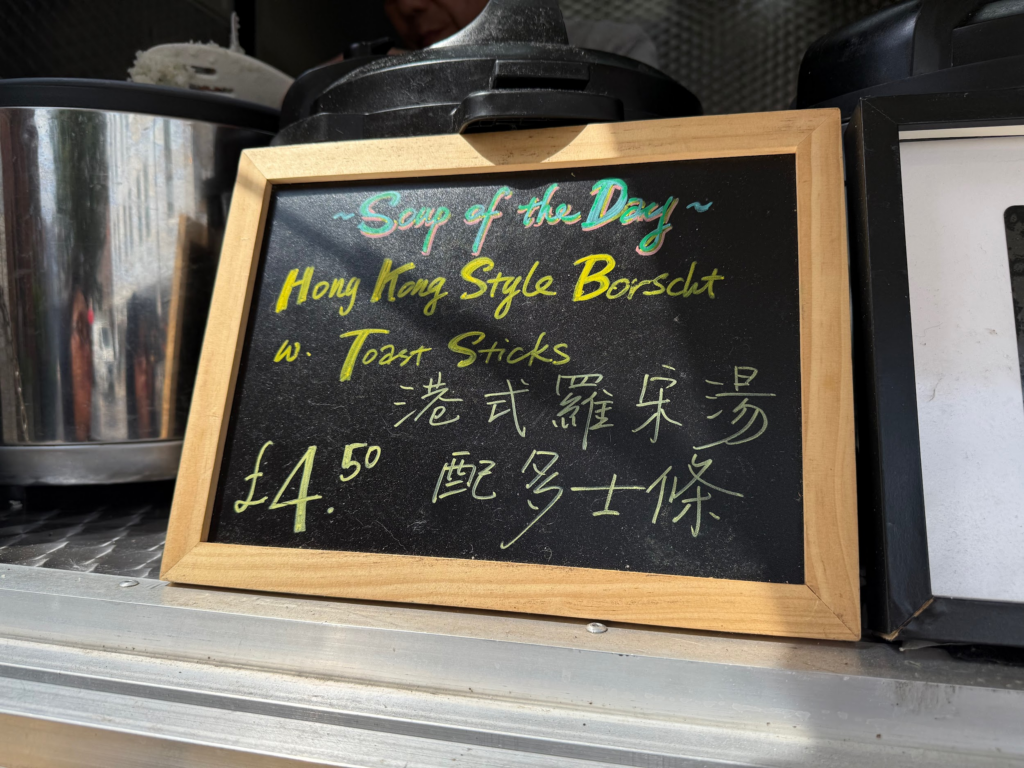 ~ Soup of the Day ~
Hong Kong Style Borscht
w. Toast Sticks
港式羅宋湯
£4.50 配多士條